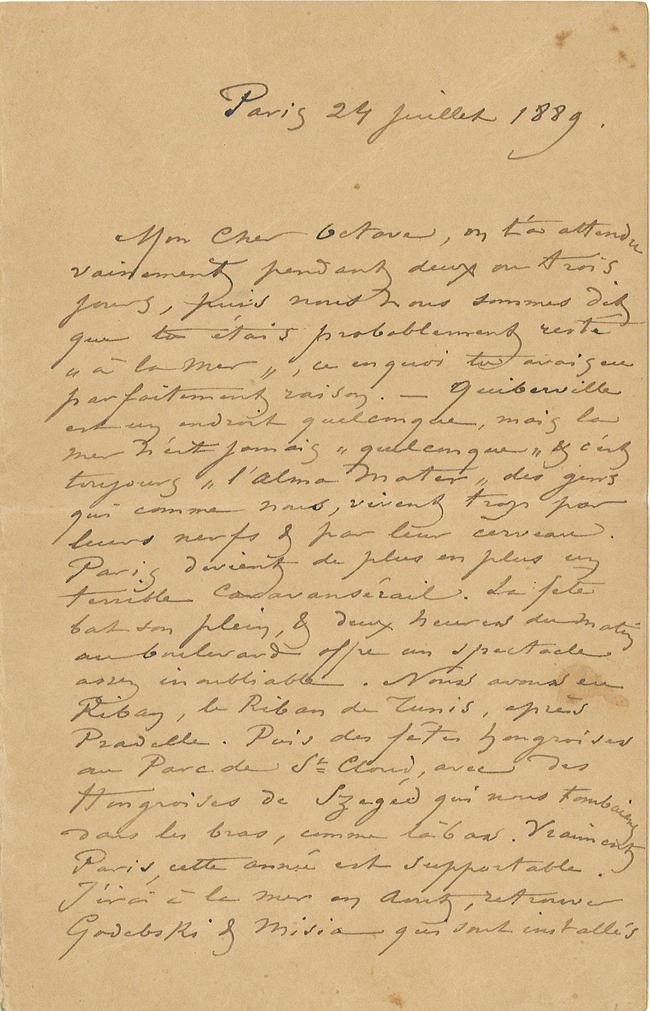 Paris 24 Juillet 1889.
Mon Cher Octave, on t'a attendu
vainement pendant deux ou trois
jours, puis nous nous sommes dit
que tu étais probablement resté
„ à la mer „, ce en quoi tu avais eu
parfaitement raison. — Quiberville
est un endroit quelconque, mais la
mer n'est jamais „ quelconque „ & c'est
toujours „ l'Alma Mater „ des gens
qui comme nous, vivent trop par
leurs nerfs & par leur cerveau.
Paris devient de plus en plus un
terrible Caravansérail. La fête
bat son plein, & deux heures du matin
au boulevard offre un spectacle
assez inoubliable. Nous avons eu
, le de Tunis, après
Pradelle. Puis des fêtes hongroises
au Parc de St Cloud, avec des
Hongroises de Szeged qui nous tombaient
dans les bras, comme là bas. Vraiment
Paris, cette année est supportable.
J'irai à la mer en Août, retrouver
Godebski & Misia qui sont installés